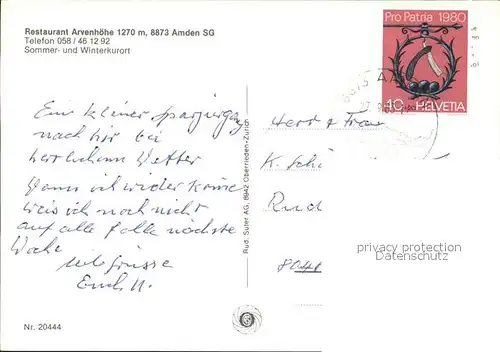 Restaurant Arvenhöhe 1270 m, 8873 Amden SG
Telefon 058 / 46 12 92
Sommer- und Winterkurort
Pro Patria 1980
40 HELVETIA
Ein kleiner Spaziergang
nach hir bei
herrlichem Wetter
Wann ich wider komme
weis ich noch nicht
auf alle Fälle nächste
Woche
Erich H.
Herr & Frau
K. Schi
Rud
8041
Rud. Suter AG, 8942 Oberrieden-Zürich
privacy protection
Datenschutz
Nr. 20444